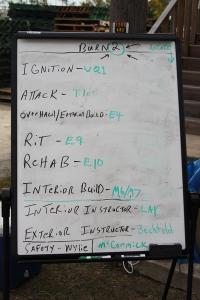 BURN 2
IGNITION - WQ1
ATTACK - T10
OVERHAUL/EXTERIOR BUILD - E4
RIT - E9
REHAB - E10
INTERIOR BUILD -
INTERIOR INSTRUCTOR - LAY
EXTERIOR INSTRUCTOR - Bechtold
SAFETY - WYLIE McCormick